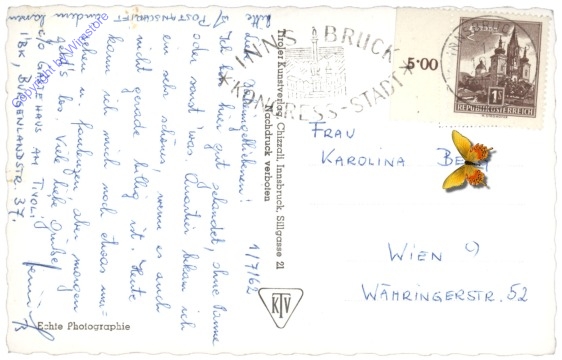 Liebe Daheimgebliebenen!
Ich bin hier gut gelandet, ohne Panne
oder sonst was. Quartier bekam ich
ein sehr schönes, wenn es auch
nicht gerade billig ist. Heute
kann ich mich noch etwas um-
sehen u. faulenzen, aber morgen
geht's los. Viele liebe Grüße!
1/7/62
Bitte
POSTANSCHRIFT
C/O GÄSTEHAUS AM TIVOLI
IBK, BURGENLANDSTR. 37.
Echte Photographie
Tiroler Kunstverlag Chizzali, Innsbruck, Sillgasse 21
Nachdruck verboten
KTV
INNSBRUCK
KONGRESS-STADT
5·00
1S
REPUBLIK ÖSTERREICH
FRAU
KAROLINA
WIEN
WÄHRINGERSTR. 52